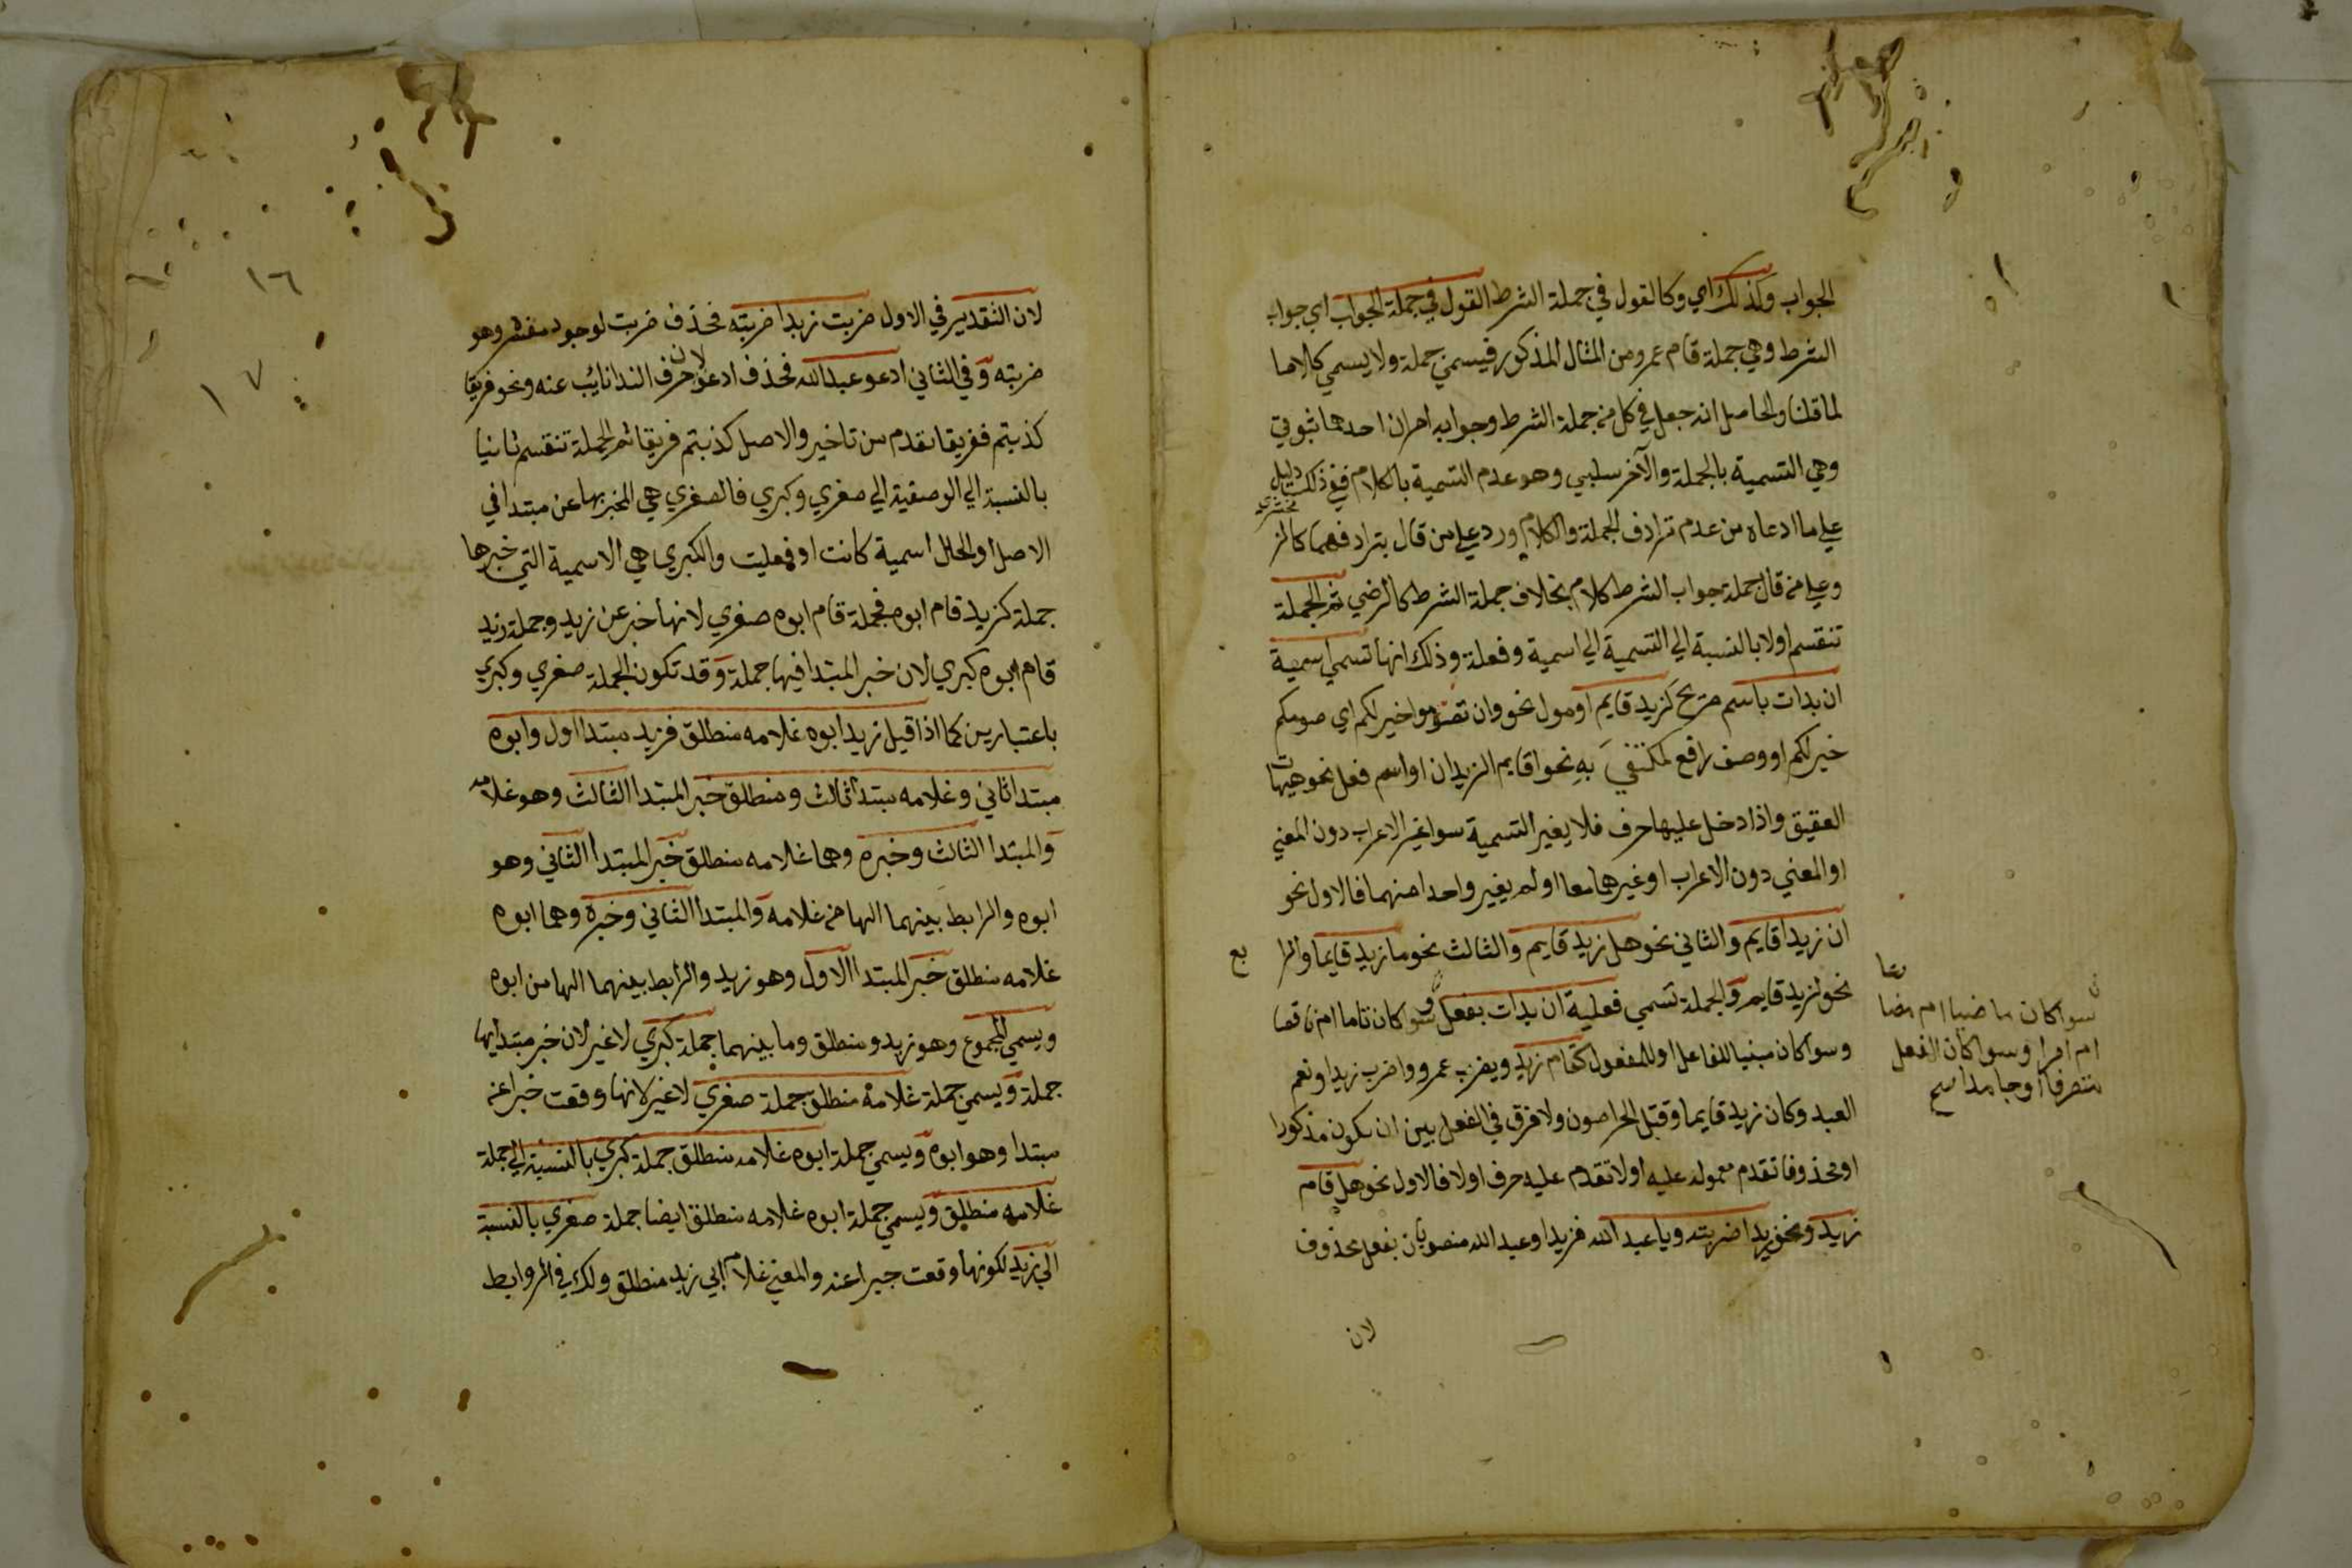 الجواب وكذلك اي وكالقول في جملة الشرط القول في جملة الجواب اي جواب
الشرط وهي جملة قام عمرو من المثال المذكور فيسمي جملة ولا يسمي كلاما
لما قلنا والحاصل انه جعل في كل من جملة الشرط وجوابه امران احدهما ثبوتي
وهي التسمية بالجملة والآخر سلبي وهو عدم التسمية بالكلام ففي ذلك دليل
علي ما ادعاه من عدم ترادف الجملة والكلام ورد علي من قال بترادفهما كالزمخشري
وعلي من قال جملة جواب الشرط كلام بخلاف جملة الشرط كالرضي ثم الجملة
تنقسم اولا بالنسبة الي التسمية الي اسمية وفعلة وذلك انها تسمي اسمية
ان بدات باسم صريح كزيد قايم او مول نحو وان تصوموا خير لكم اي صومكم
خير لكم او وصف رافع لمكتفي به نحو اقايم الزيدان او اسم فعل نحو هيهات
العقيق واذا دخل عليها حرف فلا يغير التسمية سوا غير الاعراب دون المعني
او المعني دون الاعراب او غيرهما معا او لم يغير واحدا منهما فالاول نحو
ان زيدا قايم والثاني نحو هل زيد قايم والثالث نحو ما زيد قايما والرابع
نحو لزيد قايم والجملة تسمي فعلية ان بدات بفعل سوا كان تاما ام ناقصا
وسوا كان مبنيا للفاعل او للمفعول كقام زيد ويضرب عمرو واضرب زيدا ونعم
العبد وكان زيد قايما وقتل الخراصون ولا فرق في الفعل بين ان يكون مذكورا
او محذوفا تقدم معموله عليه او لا تقدم عليه حرف او لا فالاول نحو هل قام
زيد ونحو زيدا ضربته ويا عبد الله فزيدا وعبد الله منصوبان بفعل محذوف
لان
سوا كان ماضيا ام مضا
رعا
ام امرا وسوا كان الفعل
متصرفا او جامدا صح
١٦
١٧
لان التقدير في الاول ضربت زيدا ضربته فحذف ضربت لوجود مفسره وهو
ضربته وفي الثاني ادعو عبد الله فحذف ادعو لان حرف الندا نايب عنه ونحو فريقا
كذبتم ففريقا مقدم من تاخير والاصل كذبتم فريقا ثم الجملة تنقسم ثانيا
بالنسبة الي الوصفية الي صغري وكبري فالصغري هي المخبر بها عن مبتدا في
الاصل او الحال اسمية كانت او فعليت والكبري هي الاسمية التي خبرها
جملة كزيد قام ابوه فجملة قام ابوه صغري لانها خبر عن زيد وجملة زيد
قام ابوه كبري لان خبر المبتدا فيها جملة وقد تكون الجملة صغري وكبري
باعتبارين كما اذا قيل زيد ابوه غلامه منطلق فزيد مبتدا اول وابوه
مبتدا ثاني وغلامه مبتدا ثالث ومنطلق خبر المبتدا الثالث وهو غلامه
والمبتدا الثالث وخبره وهما غلامه منطلق خبر المبتدا الثاني وهو
ابوه والرابط بينهما الها من غلامه والمبتدا الثاني وخبره وهما ابوه
غلامه منطلق خبر المبتدا الاول وهو زيد والرابط بينهما الها من ابوه
ويسمي المجموع وهو زيد ومنطلق وما بينهما جملة كبري لا غير لان خبر مبتدايها
جملة ويسمي جملة غلامه منطلق جملة صغري لا غير لانها وقعت خبرا عن
مبتدا وهو ابوه ويسمي جملة ابوه غلامه منطلق جملة كبري بالنسبة الي جملة
غلامه منطلق ويسمي جملة ابوه غلامه منطلق ايضا جملة صغري بالنسبة
الي زيد لكونها وقعت خبرا عنه والمعني غلام ابي زيد منطلق ولك في الروابط